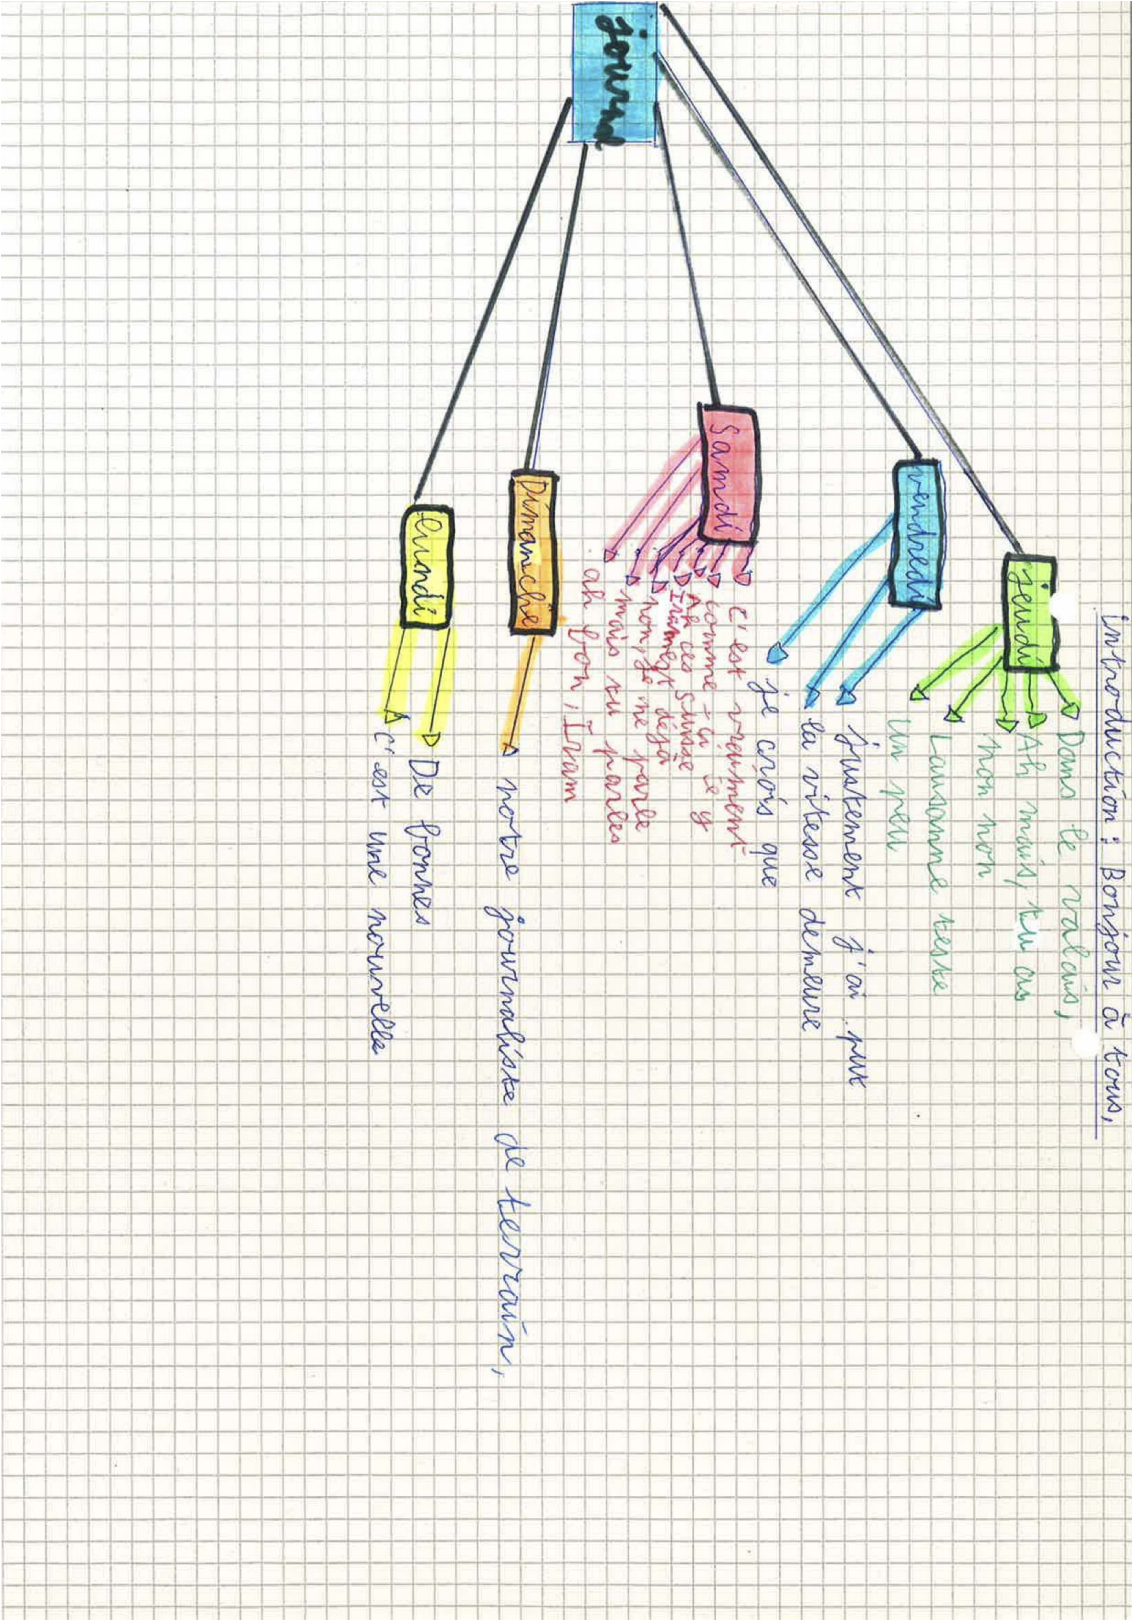 Introduction : Bonjour à tous,
journal
jeudi
Dans le valais,
Ah mais, tu as
non non
Lausanne teste
Un peu
vendredi
justement j'ai put
la vitesse demeure
je crois que
Samdi
c'est vraiment
comme-ci é y
Ah ces Suisse
Iran est déjà
non, je ne parle
mais tu parles
ah bon, Iram
Dimanche
notre journaliste de terrain,
lundi
De bonnes
c'est une nouvelle